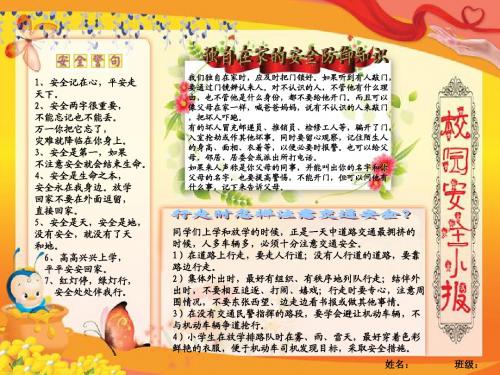 安全警句
1、安全记在心，平安走
天下。
2、安全两字很重要，
不能忘记也不能丢。
万一你把它忘了，
灾难就降临在你身上。
3、安全是第一，如果
不注意安全就会结束生命。
4、安全是生命之本，
安全永在我身边。放学
回家不要在外面逗留，
直接回家。
5、安全是天，安全是地，
没有安全，就没有了天
和地。
6、高高兴兴上学，
平平安安回家。
7、红灯停，绿灯行，
安全处处伴我行。
独自在家的安全防御知识
我们独自在家时，应及时把门锁好。如果听到有人敲门，
要通过门镜辨认来人。对不认识的人，不管他有什么理
由，也不管他是什么身份，都不要给他开门，而且可以
像父母在家一样，喊爸爸妈妈，说有不认识的人来敲门
，把坏人吓跑。
有的坏人冒充邮递员、推销员、检修工人等，骗开了门，
入室抢劫或作其他坏事。同时要留心观察，记住陌生人
的身高、面相、衣着等，以便必要时报警。也可以给父
母，邻居，居委会或派出所打电话。
如果来人声称是你父母的同事，并能叫出你的名字和你
父母的名字，也要提高警惕，不能开门，但可以问他有
什么事，记下来告诉父母。
行走时怎样注意交通安全？
同学们上学和放学的时候，正是一天中道路交通最拥挤的
时候，人多车辆多，必须十分注意交通安全。
1）在道路上行走，要走人行道；没有人行道的道路，要靠
路边行走。
2）集体外出时，最好有组织、有秩序地列队行走；结伴外
出时，不要相互追逐、打闹、嬉戏；行走时要专心，注意周
围情况，不要东张西望、边走边看书报或做其他事情。
3）在没有交通民警指挥的路段，要学会避让机动车辆，不
与机动车辆争道抢行。
4）小学生在放学排路队时在雾、雨、雷天，最好穿着色彩
鲜艳的衣服，便于机动车司机发现目标，采取安全措施。
校园安全小报
姓名： 班级：